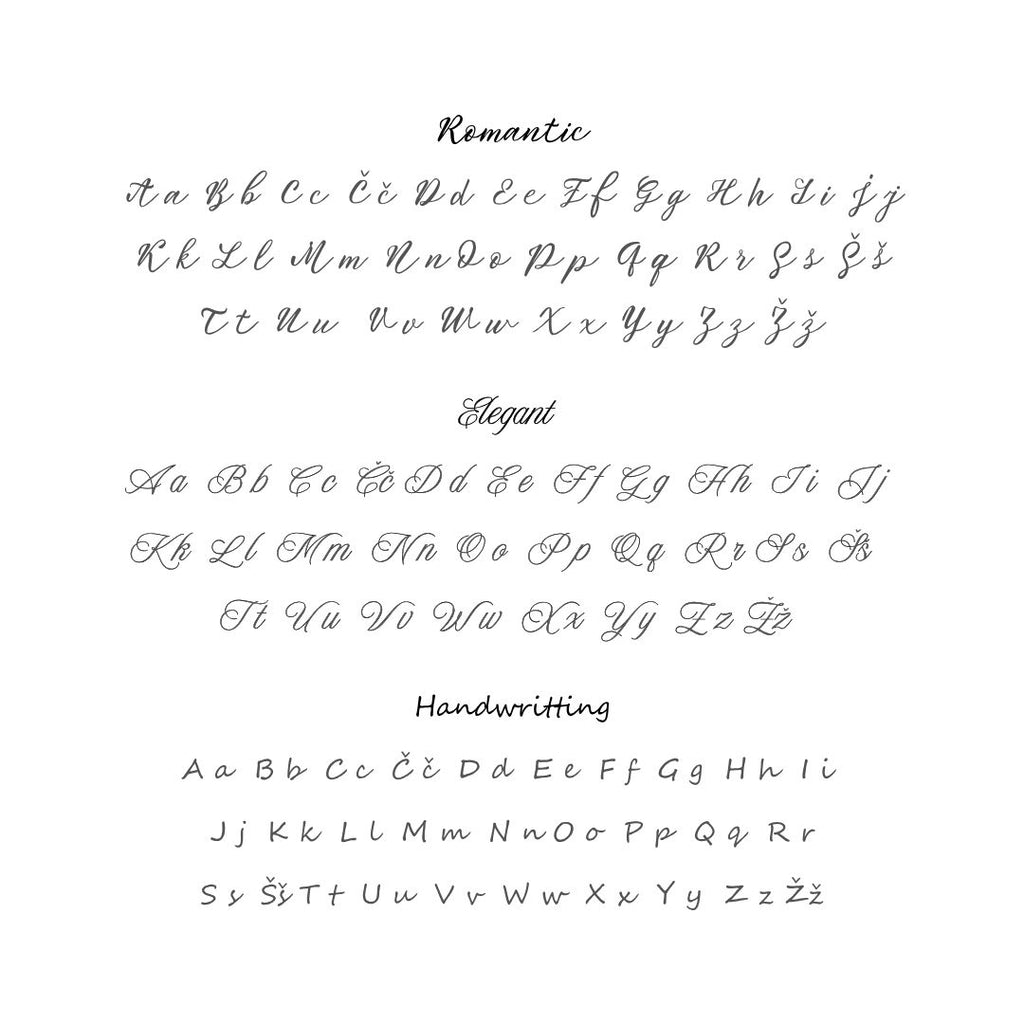 Romantic
Aa Bb Cc Čč Dd Ee Ff Gg Hh Ii Jj
Kk Ll Mm Nn Oo Pp Qq Rr Ss Šš
Tt Uu Vv Ww Xx Yy Zz Žž
Elegant
Aa Bb Cc Čč Dd Ee Ff Gg Hh Ii Jj
Kk Ll Mm Nn Oo Pp Qq Rr Ss Šš
Tt Uu Vv Ww Xx Yy Zz Žž
Handwritting
Aa Bb Cc Čč Dd Ee Ff Gg Hh Ii
Jj Kk Ll Mm Nn Oo Pp Qq Rr
Ss Šš Tt Uu Vv Ww Xx Yy Zz Žž